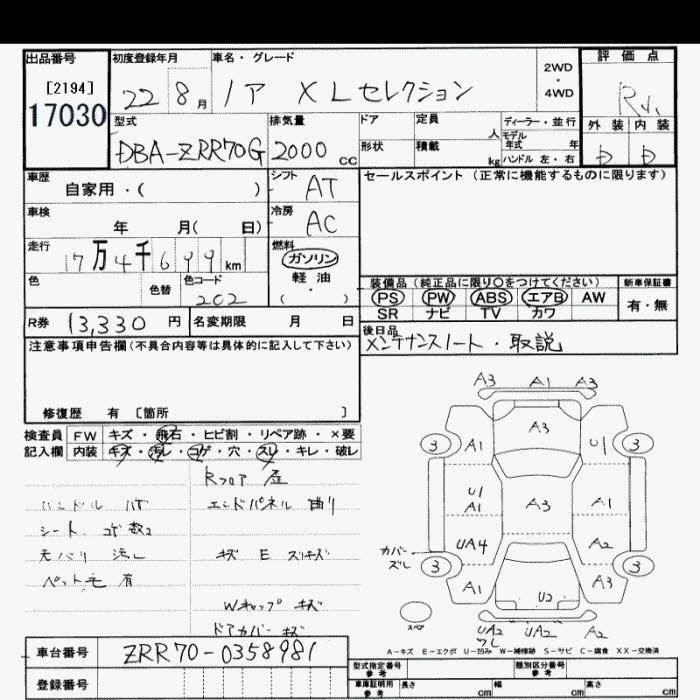 出品番号 初度登録年月 車名・グレード 2WD・4WD 評価点
[2194] 22 8月 ノア XLセレクション
17030 型式 排気量 ドア 定員 人 ディーラー・並行 外装 内装
DBA-ZRR70G 2000 CC 形状 積載 kg モデル年式 年 ハンドル 左・右 D D
車歴 シフト セールスポイント (正常に機能するものに限ります)
自家用・( ) AT
車検 冷房
年 月( 日) AC
走行 燃料
17万4千699km ガソリン
色 色替 色コード 軽油 装備品 (純正品に限り○をつけてください) 新車保証書
202 ・( ) PS PW ABS エアB AW 有・無
SR ナビ TV カワ
R券 13,330円 名変期限 月 日 後日品
メンテナンスノート・取説
注意事項申告欄(不具合内容等は具体的に記入して下さい)
修復歴 有 [箇所 ]
検査員 FW キズ・飛石・ヒビ割・リペア跡・×要
記入欄 内装 キズ・汚レ・コゲ・穴・スレ・キレ・破レ
Rフロア
ハンドル エンドパネル 曲り
シート コゲ数コ
キズ E スリキズ
ペット毛 有
Wキャップ キズ
ドアカバー キズ
A3 A1 A3
A3
3 A1 U1 3
U1
A1 A3 A1
カバーズレ UA4 A2
3 3
A1 A3
U2
スペア UA2 UA2 A2
ワレ
A-キズ E-エクボ U-凹み W-補修跡 S-サビ C-腐食 XX-交換済
車台番号 ZRR70-0358981
型式指定番号 参考 類別区分番号 参考
登録番号 車庫証明用 参考 長さ cm 幅 cm 高さ cm